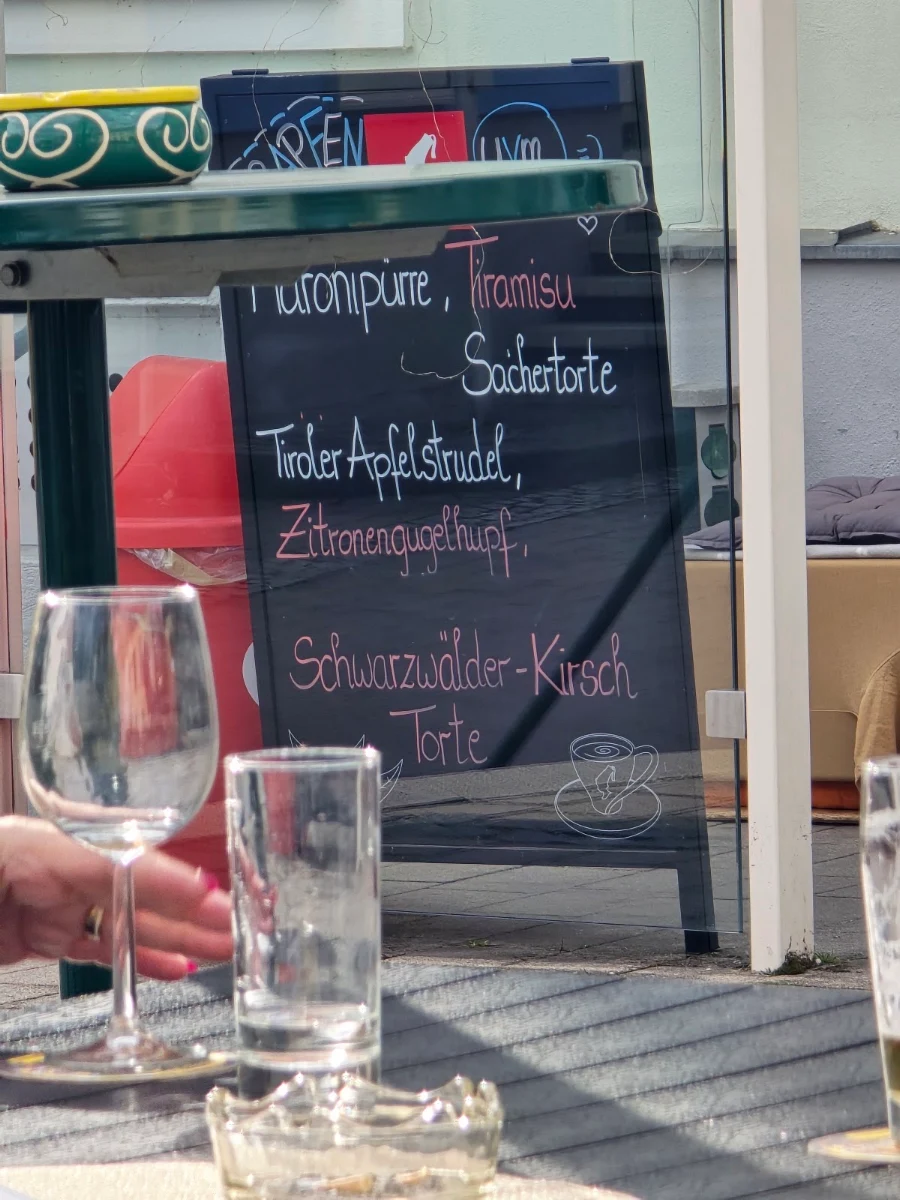 Maronipürre, Tiramisu
Sachertorte
Tiroler Apfelstrudel,
Zitronengugelhupf,
Schwarzwälder-Kirsch
Torte